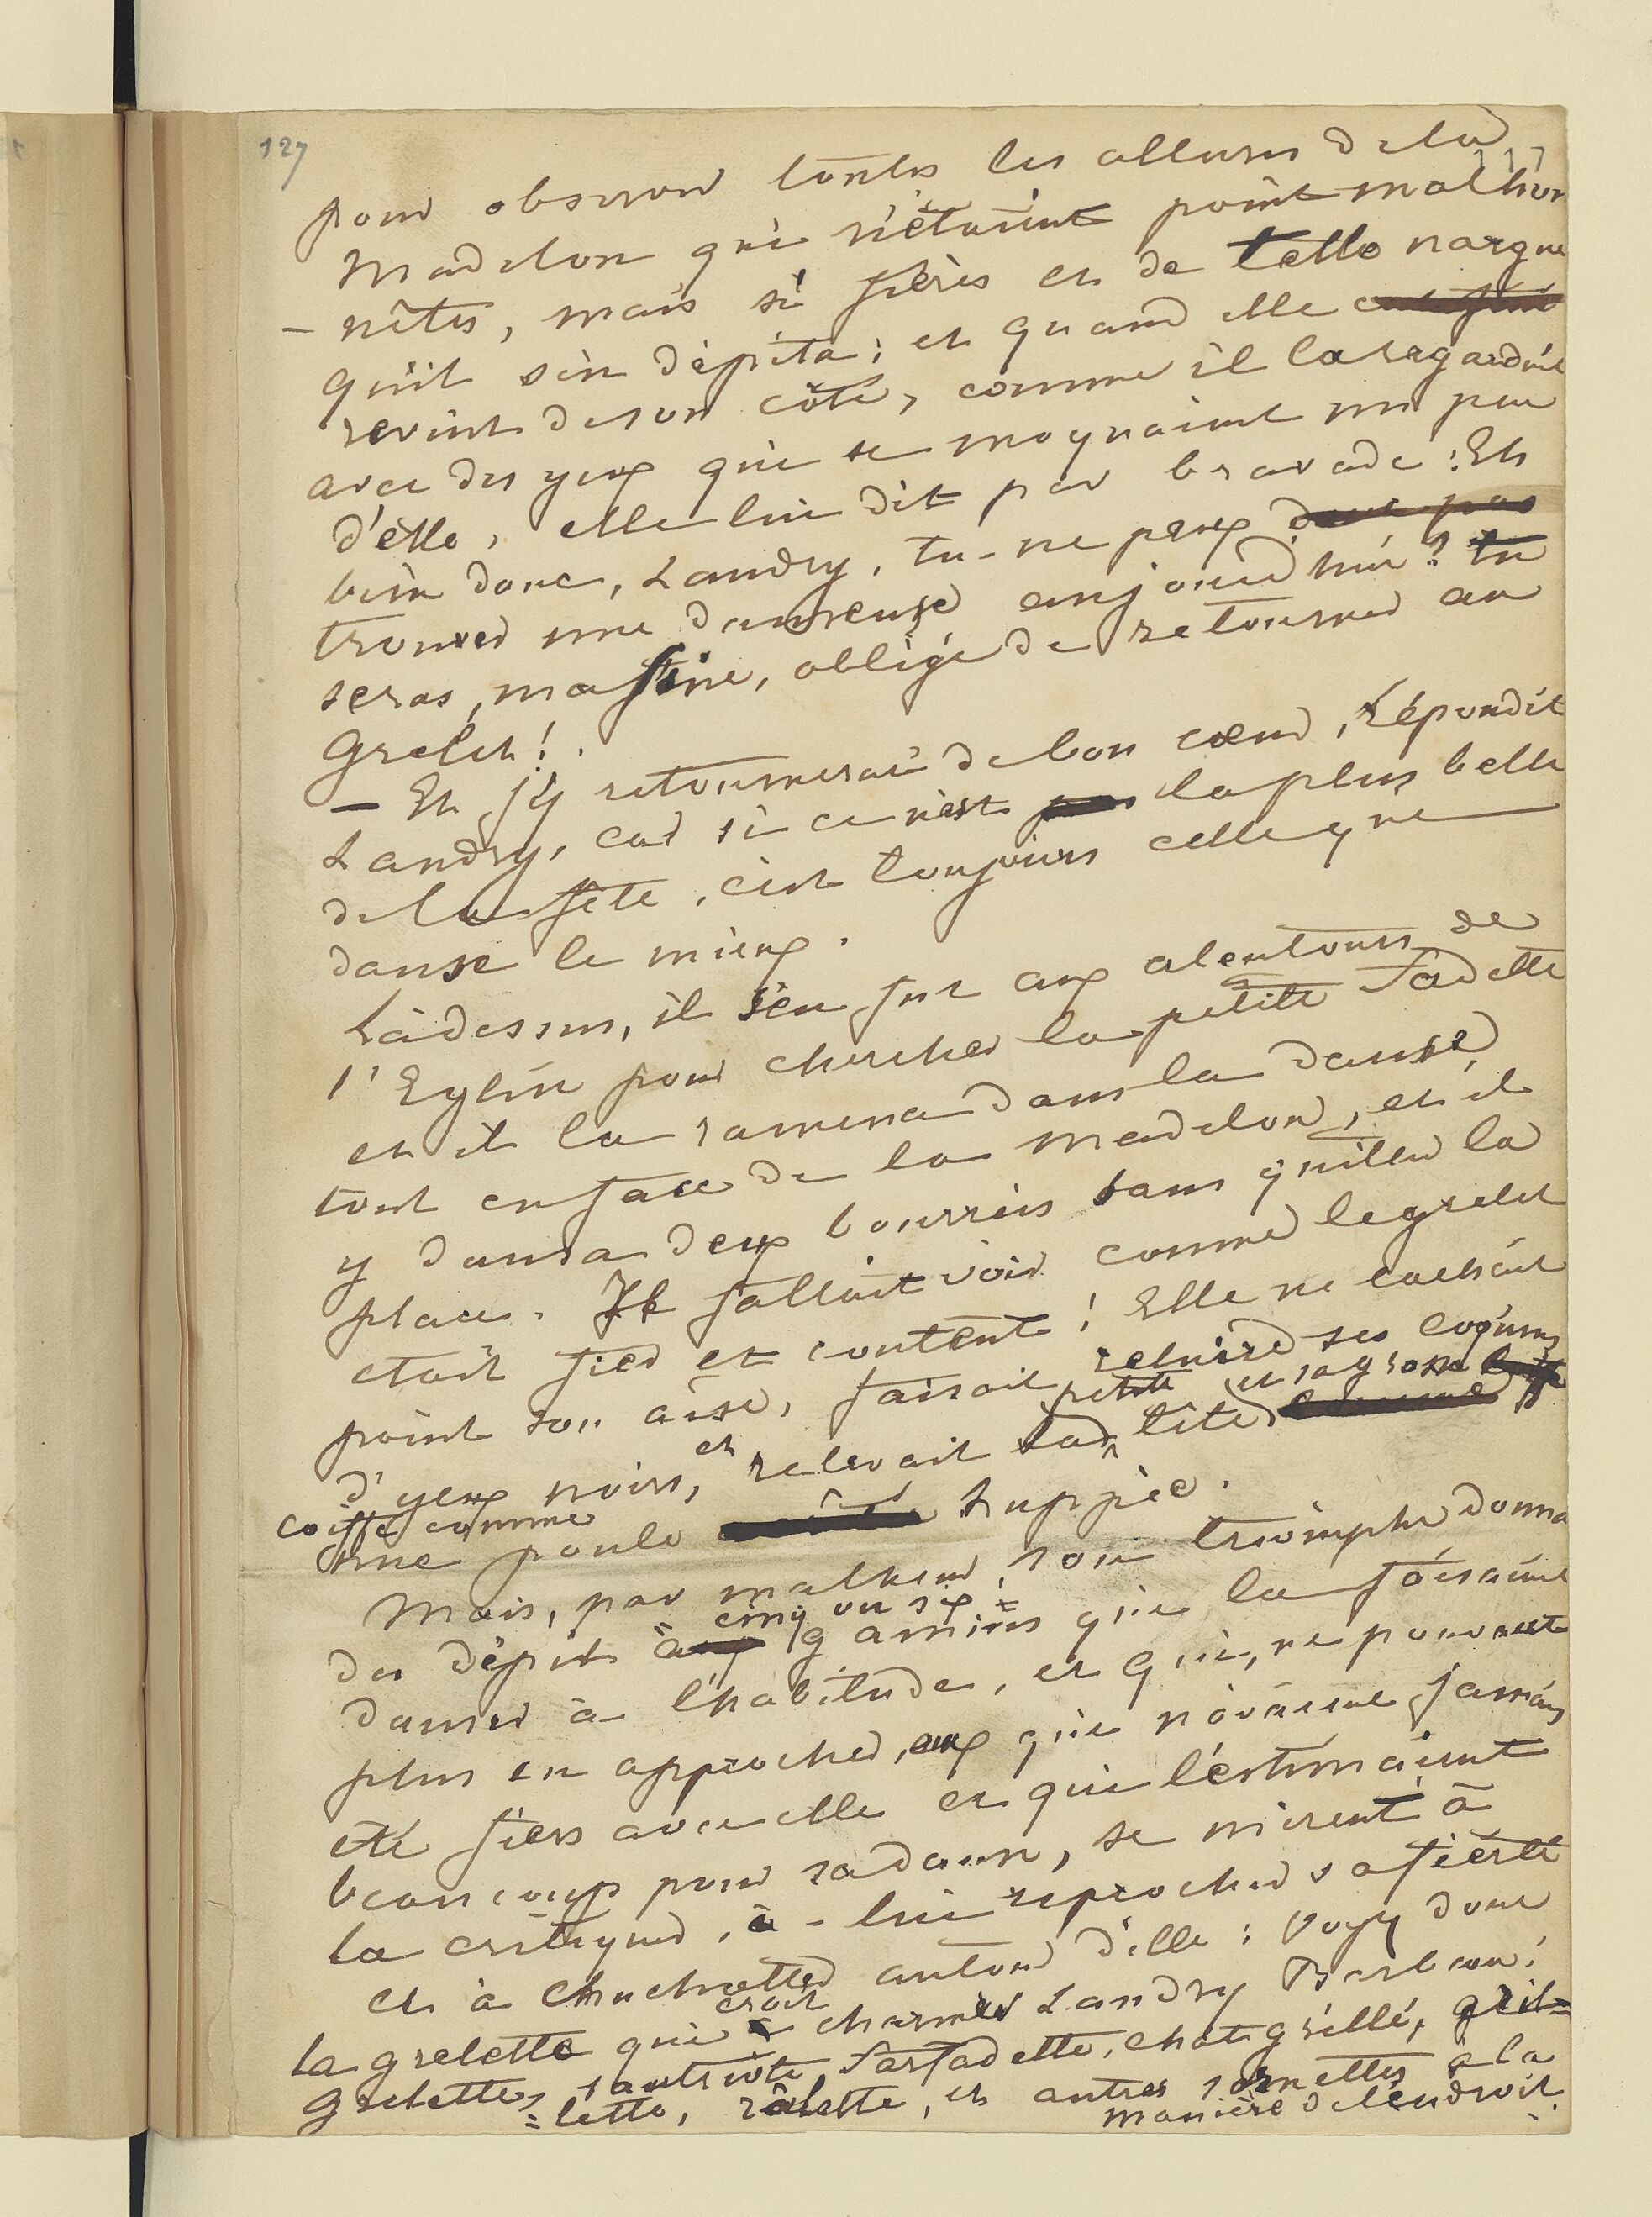 127
pour observer toutes les allures de la
Madelon qui n'étaient point malhon
- nêtes, mais si fières et de telle nargue
qu'il s'en dépita; et quand elle
revint de son côté, comme il la regardait
avec des yeux qui se moquaient un peu
d'elle, elle lui dit par bravade: Eh
bien donc, Landry, tu ne peux donc pas
trouver une danseuse aujourd'hui? tu
seras, ma fine, obligé de retourner au
Grelet!
— Et j'y retournerai de bon cœur, répondit
Landry, car si ce n'est pas la plus belle
de la fête, c'est toujours celle que
danse le mieux.
Là dessus, il s'en fut aux alentours de
l'Eglise pour chercher la petite Fadette
et il la ramena dans la danse,
tout en face de la Madelon, et il
y dansa deux bourrées sans quitter la
place. Il fallait voir comme le grelet
etait fier et content! Elle ne cachait
point son aise, faisait reluire ses coquins
d'yeux noirs, et relevait sa petite tête et sa grosse
coiffe comme
une poule huppée.
Mais, par malheur, son triomphe donna
du dépit à cinq ou six gamins qui la faisaient
danser à l'habitude, et qui, ne pouvant
plus en approcher, eux qui n'avaient jamais
été fiers avec elle et qui l'estimaient
beaucoup pour sa danse, se mirent à
la critiquer, à lui reprocher sa fierté
et à chuchotter autour d'elle: voyez donc
la grelette qui croit charmer Landry Barbeau!
Grelette, sautriote, farfadette, chat grillé, gril=
=lette, râlette, et autres sornettes à la
manière de l'endroit.